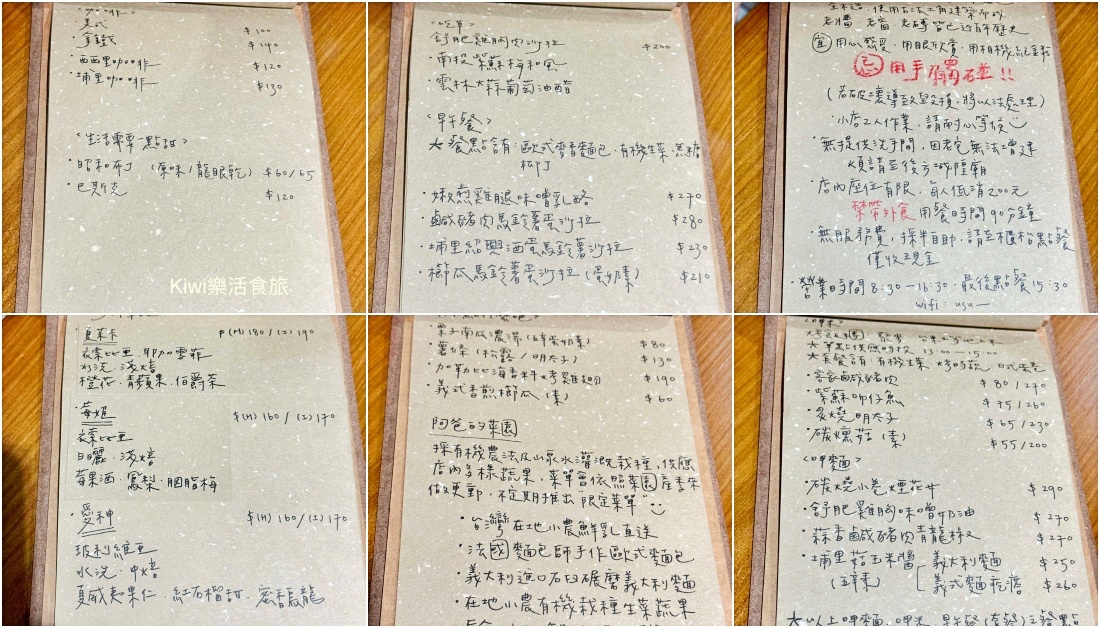 <咖啡>
美式 $100
拿鐵 $140
西西里咖啡 $120
埔里咖啡 $130
<生活需要一點甜>
·昭和布丁 (原味/龍眼乾) $60/65
·巴斯克 $120
Kiwi樂活食旅
<吃草>
舒肥雞胸肉沙拉 $200
·南投紫蘇梅和風
·雲林大蒜葡萄油醋
<早午餐>
大餐點含有:歐式麥香麵包.有機生菜.焦糖
布丁
·嫩煎雞腿味噌乳酪 $270
·鹹豬肉馬鈴薯蛋沙拉 $280
·埔里紹興酒蛋馬鈴薯沙拉 $230
·櫛瓜馬鈴薯蛋沙拉(蛋奶素) $210
老牆.老窗.老磚皆已近百年歷史
宜 用心感受.用眼欣賞.用相機紀錄
忌 用手觸碰!!
(若破壞導致毀損,將以法處理)
·小店2人作業,請耐心等候
·無提供洗手間,因老宅無法增建
煩請至後方城隍廟
·店內座位有限,每人低消200元
禁帶外食 用餐時間90分鐘
·無服務費,採半自助,請至櫃枱點餐
僅收現金
·營業時間8:30-16:30.最後點餐15:30
wifi:usu—
·夏菓卡 $(H)180/(I)190
衣索比亞.耶加雪菲
水洗.淺焙
橙花.青蘋果.伯爵茶
·莓姬 $(H)160/(I)170
衣索比亞
日曬.淺焙
莓果酒.鳳梨.胭脂梅
·愛神 $(H)160/(I)170
玻利維亞
水洗.中焙
夏威夷果仁.紅石榴甜.蜜香烏龍
·栗子南瓜濃湯(蛋奶素) $80
·薯條(松露/明太子) $130
·加勒比海香料烤雞翅 $190
·義式香煎櫛瓜(素) $60
阿爸的菜園
採有機農法及山泉水灌溉栽種,供應
店內多樣蔬果,菜單會依照菜園產季來
做更動,不定期推出"限定菜單"
·台灣在地小農鮮乳直送
·法國麵包師手作歐式麵包
·義大利進口石臼碾磨義大利麵
·在地小農有機栽種生菜蔬果
<呷米>
大單點供應時段 13:00—15:00
大套餐含有:有機生菜.烤時蔬.日式蛋卷
·客家鹹豬肉 $80/270
·紫蘇吻仔魚 $75/260
·炙燒明太子 $65/230
·碳燻菇(素) $55/200
<呷麵>
·碳燒小卷煙花女 $290
·舒肥雞胸味噌奶油 $270
·蒜香鹹豬肉青龍椒 $270
·埔里菇玉米醬 義大利麵 $250
(五辛素) 義式麵疙瘩 $260
大以上呷麵.呷米.早午餐(套餐)之餐點